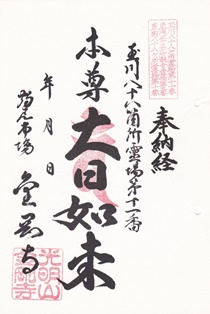 奉納経
玉川八十八箇所霊場第十一番
本尊 大日如来
年 月 日
鶴見市場
金剛寺
光明山
金剛寺